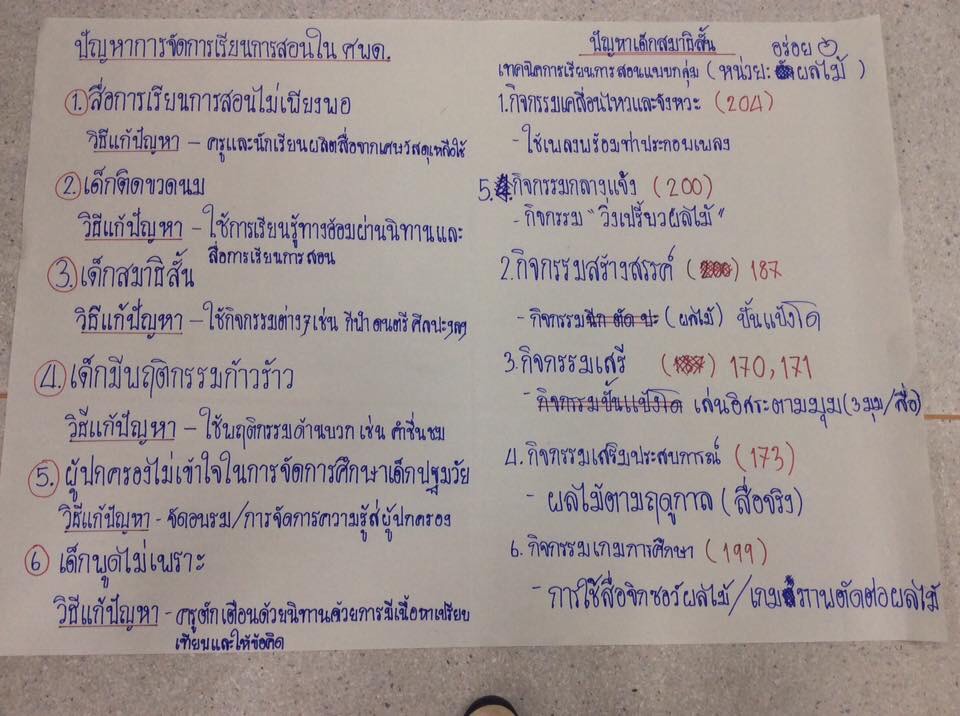 ปัญหาการจัดการเรียนการสอนใน ศพด.
① สื่อการเรียนการสอนไม่เพียงพอ
วิธีแก้ปัญหา – ครูและนักเรียนผลิตสื่อจากเศษวัสดุเหลือใช้
②. เด็กติดขวดนม
วิธีแก้ปัญหา – ใช้การเรียนรู้ทางอ้อมผ่านนิทานและ
สื่อการเรียนการสอน
③. เด็กสมาธิสั้น
วิธีแก้ปัญหา – ใช้กิจกรรมต่างๆ เช่น กีฬา ดนตรี ศิลปะ ฯลฯ
④. เด็กมีพฤติกรรมก้าวร้าว
วิธีแก้ปัญหา – ใช้พฤติกรรมด้านบวก เช่น คำชื่นชม
⑤. ผู้ปกครองไม่เข้าใจในการจัดการศึกษาเด็กปฐมวัย
วิธีแก้ปัญหา - จัดอบรม/การจัดการความรู้สู่ผู้ปกครอง
⑥ เด็กพูดไม่เพราะ
วิธีแก้ปัญหา - ครูตักเตือนด้วยนิทานด้วยการมีเนื้อหาเปรียบ
เทียบและให้ข้อคิด
ปัญหาเด็กสมาธิสั้น
อร่อย
เทคนิคการเรียนการสอนแบบกลุ่ม (หน่วย: ผลไม้ )
1. กิจกรรมเคลื่อนไหวและจังหวะ (204)
- ใช้เพลงพร้อมท่าประกอบเพลง
5. กิจกรรมกลางแจ้ง (200)
- กิจกรรม "วิ่งเปรี้ยวผลไม้"
2. กิจกรรมสร้างสรรค์ (200) 187
- กิจกรรมฉีก ตัด ปะ (ผลไม้) ปั้นแป้งโด
3. กิจกรรมเสรี (187) 170, 171
- กิจกรรมปั้นแป้งโด เล่นอิสระตามมุม (3 มุม/สื่อ)
4. กิจกรรมเสริมประสบการณ์ (173)
- ผลไม้ตามฤดูกาล (สื่อจริง)
6. กิจกรรมเกมการศึกษา (199)
- การใช้สื่อจิกซอร์ผลไม้/เกมภาพตัดต่อผลไม้